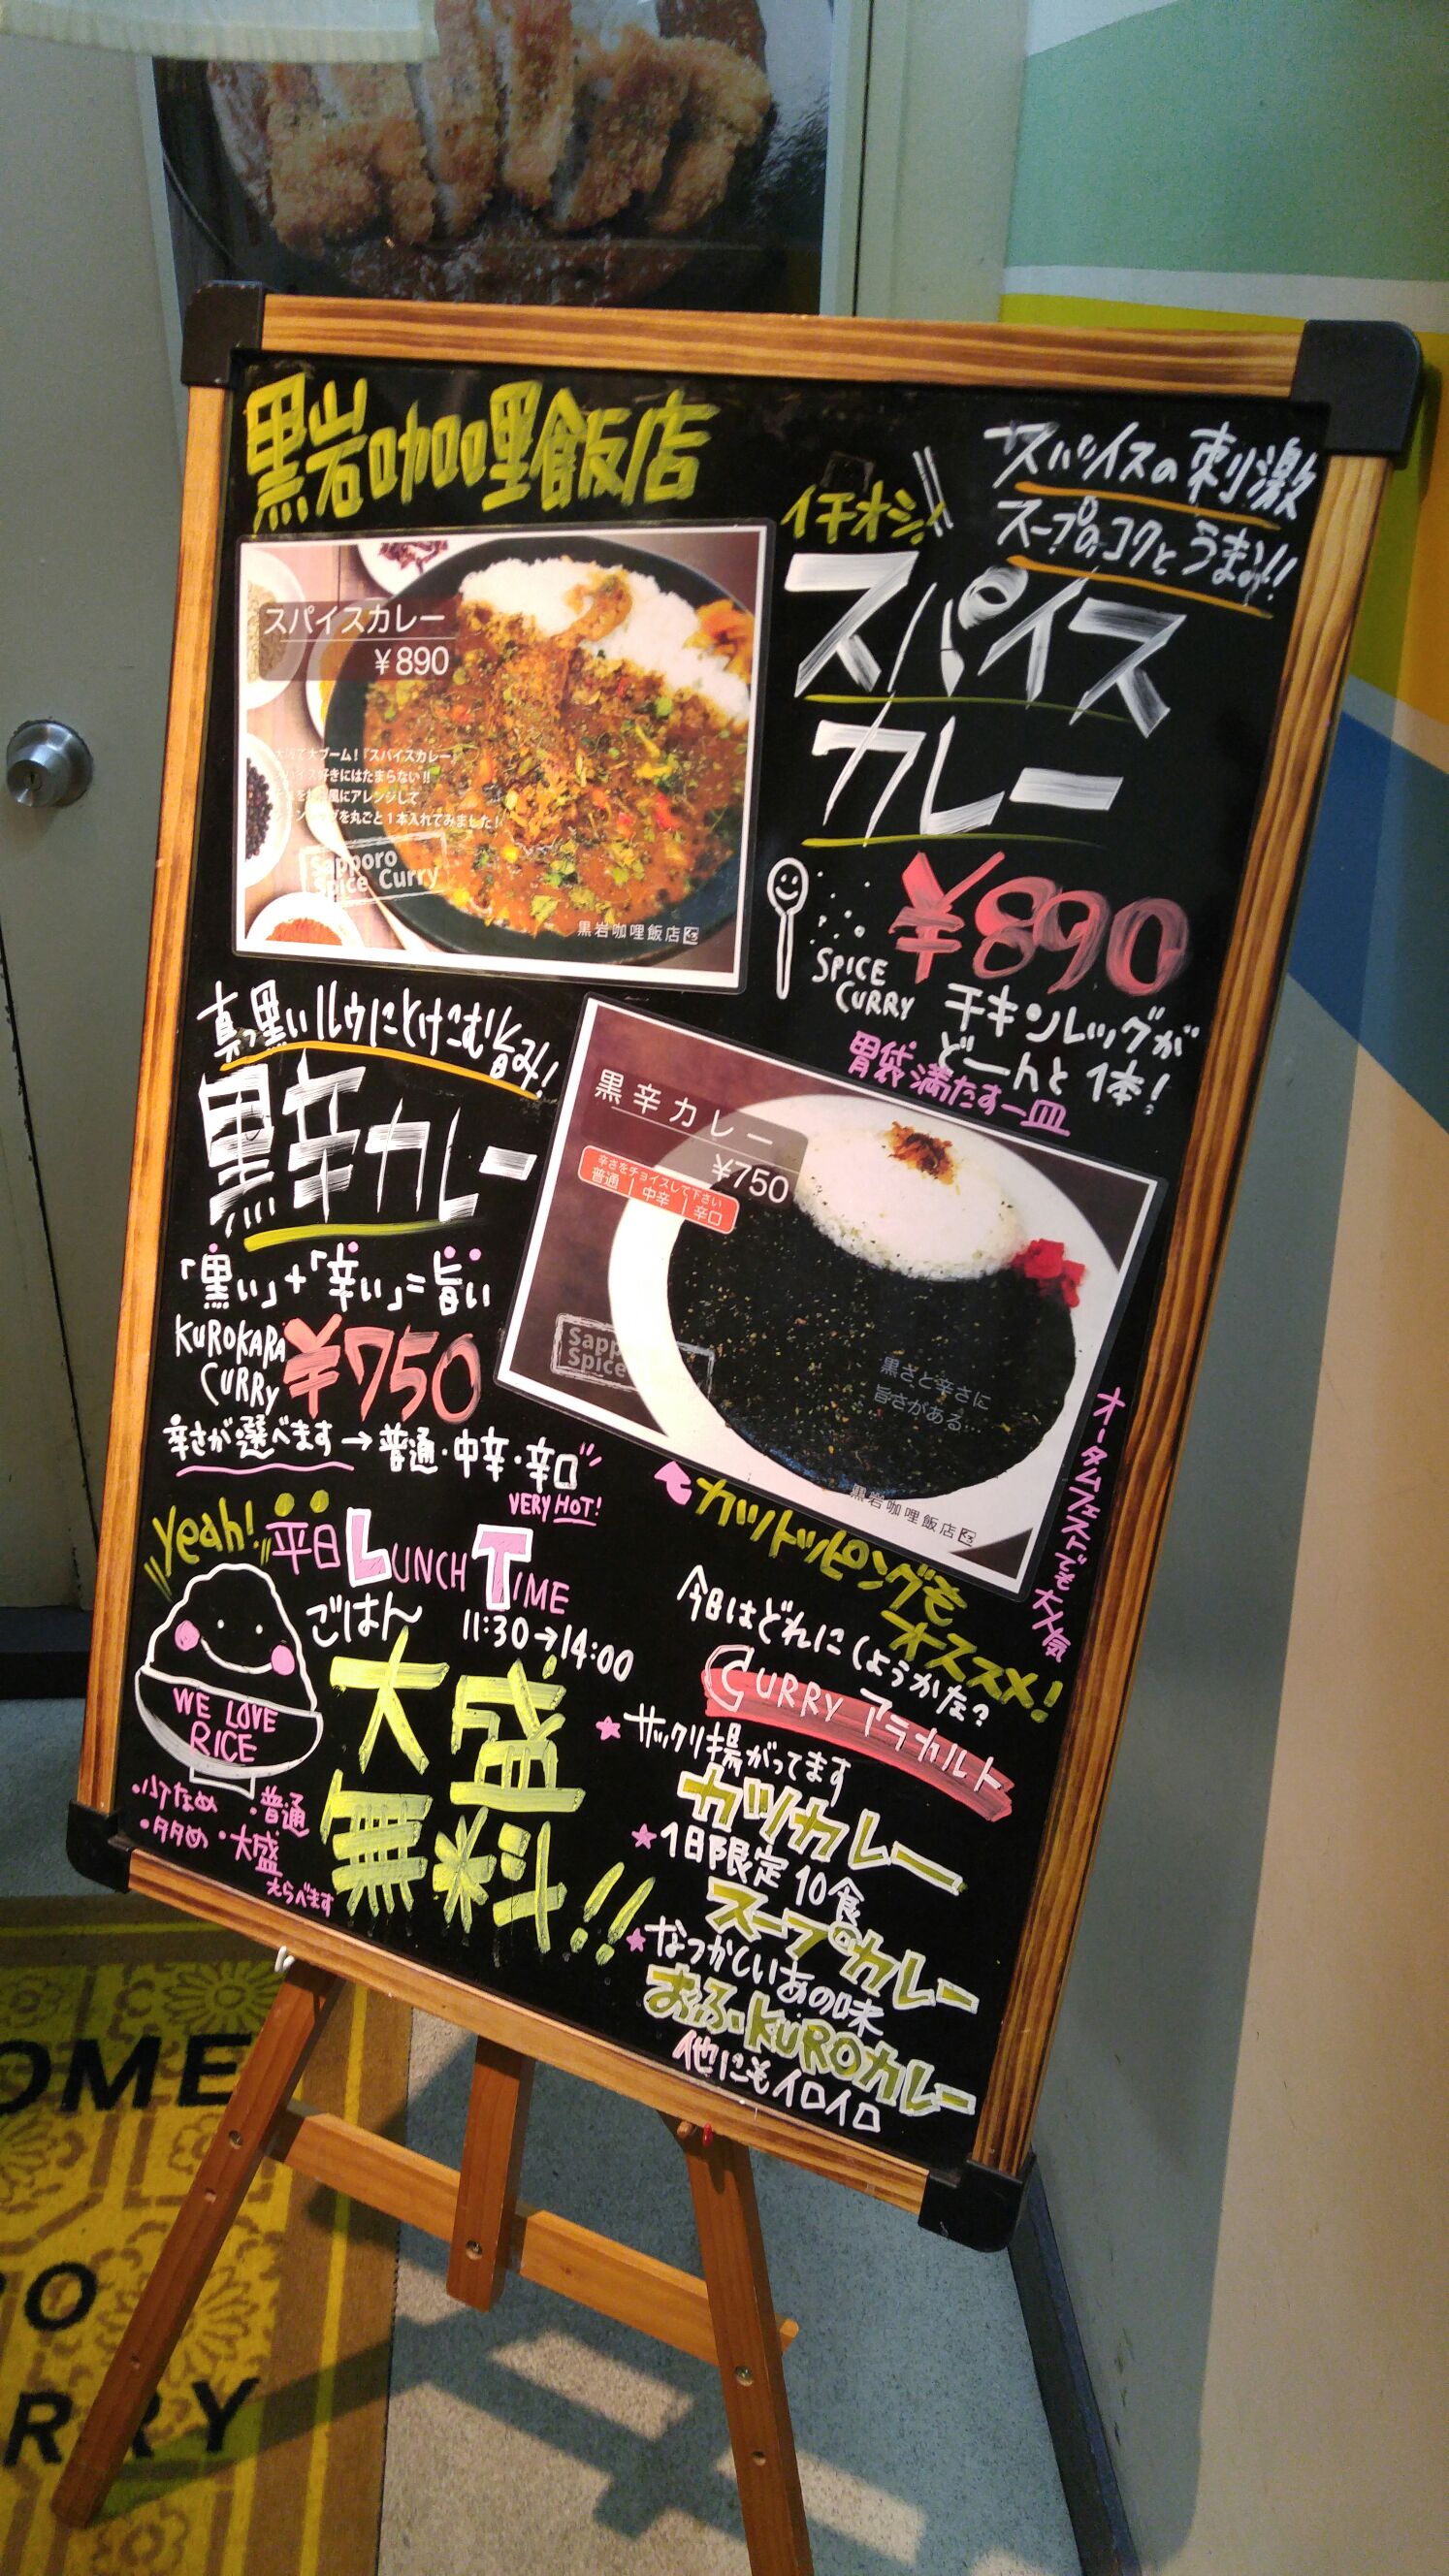 黒岩咖哩飯店
イチオシ!
スパイスの刺激
スープのコクとうまみ!!
スパイス
カレー
¥890
SPICE
CURRY
チキンレッグが
どーんと1本!
胃袋満たす一皿
スパイスカレー
¥890
大ブーム!『スパイスカレー』
スパイス好きにはたまらない!!
風にアレンジして
を丸ごと1本入れてみました!
Sapporo
Spice Curry
黒岩咖哩飯店
真っ黒いルウにとけこむ旨み!
黒辛カレー
「黒い」+「辛い」=旨い
KUROKARA
CURRY
¥750
辛さが選べます→普通・中辛・辛口
VERY HOT!
黒辛カレー
¥750
辛さをチョイスして下さい
普通|中辛|辛口
Sapp
Spice
黒さと辛さに
旨さがある…
黒岩咖哩飯店
オータムフェストでも大人気
カツトッピングも
オススメ!
Yeah!
平日LUNCH TIME
11:30→14:00
ごはん
大盛
無料!!
WE LOVE
RICE
・少なめ ・普通
・多め ・大盛
えらべます
今日はどれにしようかな?
CURRY アラカルト
★サックリ揚がってます
カツカレー
★1日限定10食
スープカレー
★なつかしいあの味
おふくKUROカレー
他にもイロイロ
OME
O
RRY